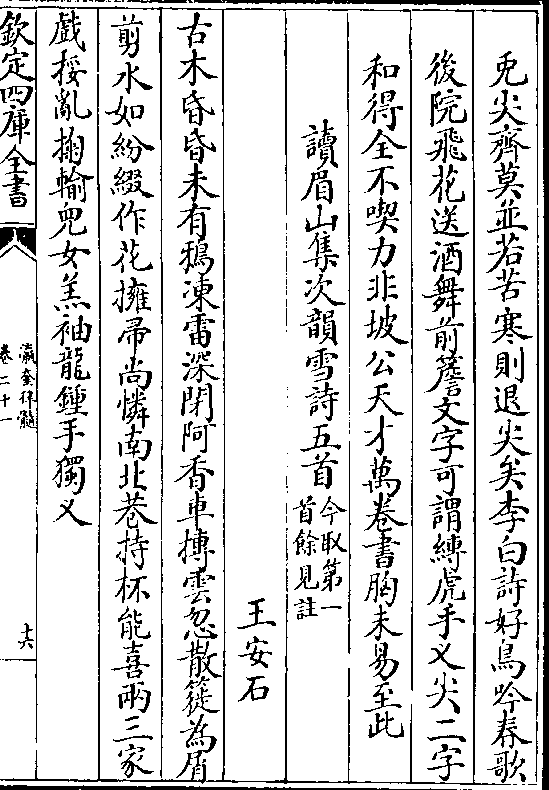 兎尖齊莫並若苦寒則退尖矣李白詩好鳥吟春歌
後院飛花送酒舞前簷文字可謂縛虎手义尖二字
和得全不喫力非坡公天才萬卷書胸未易至此
讀眉山集次韻雪詩五首今取第一
首餘見註
王安石
古木昏昏未有鵶凍雷深閉阿香車摶雲忽散簁為屑
剪水如紛綴作花擁帚尚憐南北巷持杯能喜兩三家
戲挼亂掬輸兒女羔袖龍鍾手獨义
欽定四庫全書
瀛奎律髓
卷二十一
十六